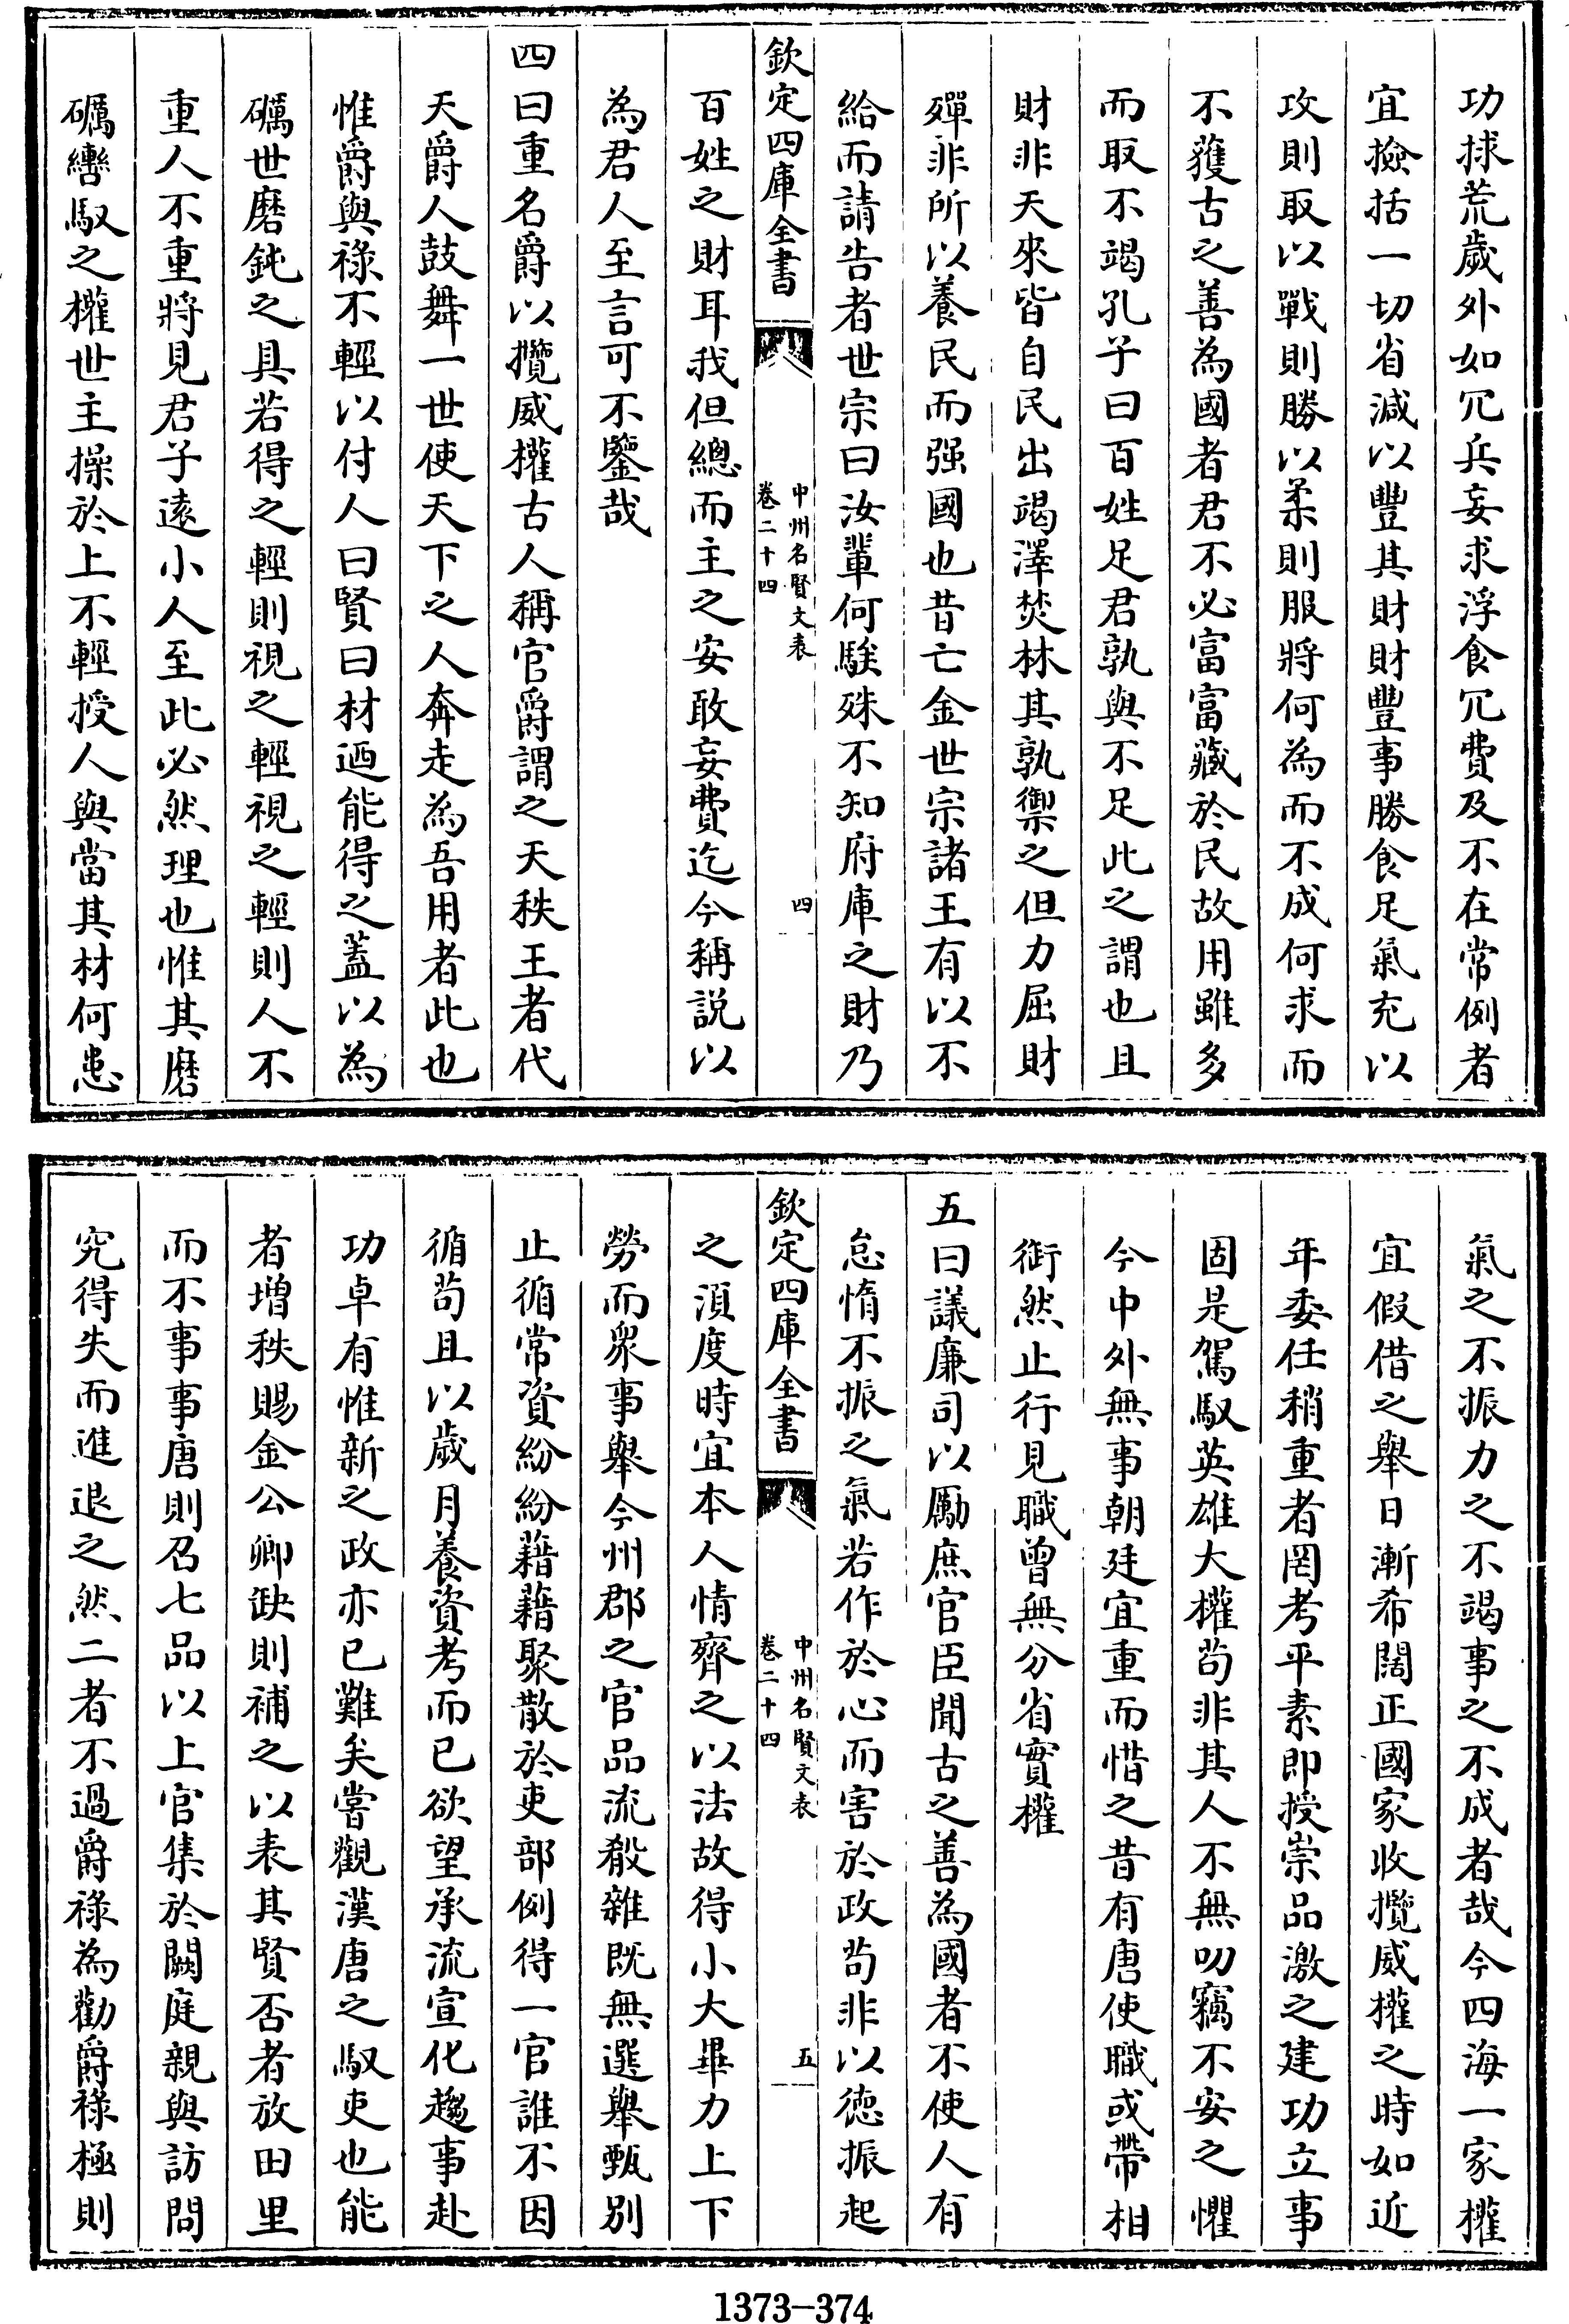 功捄荒歲外如冗兵妄求浮食冗費及不在常例者
宜撿括一切省減以豐其財財豐事勝食足氣充以
攻則取以戰則勝以柔則服將何為而不成何求而
不獲古之善為國者君不必富富藏於民故用雖多
而取不竭孔子曰百姓足君孰與不足此之謂也且
財非天來皆自民出竭澤焚林其孰禦之但力屈財
殫非所以養民而强國也昔亡金世宗諸王有以不
給而請告者世宗曰汝輩何騃殊不知府庫之財乃
欽定四庫全書
中州名賢文表
卷二十四
四
百姓之財耳我但總而主之安敢妄費迄今稱説以
為君人至言可不鑒哉
四曰重名爵以攬威權古人稱官爵謂之天秩王者代
天爵人鼓舞一世使天下之人奔走為吾用者此也
惟爵與祿不輕以付人曰賢曰材迺能得之蓋以為
礪世磨鈍之具若得之輕則視之輕視之輕則人不
重人不重將見君子遠小人至此必然理也惟其磨
礪轡馭之權世主操於上不輕授人與當其材何患
氣之不振力之不竭事之不成者哉今四海一家權
宜假借之舉日漸希闊正國家收攬威權之時如近
年委任稍重者罔考平素即授崇品激之建功立事
固是駕馭英雄大權茍非其人不無叨竊不安之懼
今中外無事朝廷宜重而惜之昔有唐使職或帶相
銜然止行見職曾無分省實權
五曰議廉司以勵庶官臣聞古之善為國者不使人有
怠惰不振之氣若作於心而害於政茍非以徳振起
欽定四庫全書
中州名賢文表
卷二十四
五
之湏度時宜本人情齊之以法故得小大畢力上下
勞而衆事舉今州郡之官品流殽雜既無選舉甄别
止循常資紛紛藉藉聚散於吏部例得一官誰不因
循茍且以歲月養資考而已欲望承流宣化趨事赴
功卓有惟新之政亦已難矣嘗觀漢唐之馭吏也能
者增秩賜金公卿缺則補之以表其賢否者放田里
而不事事唐則召七品以上官集於闕庭親與訪問
究得失而進退之然二者不過爵祿為勸爵祿極則
1373-374